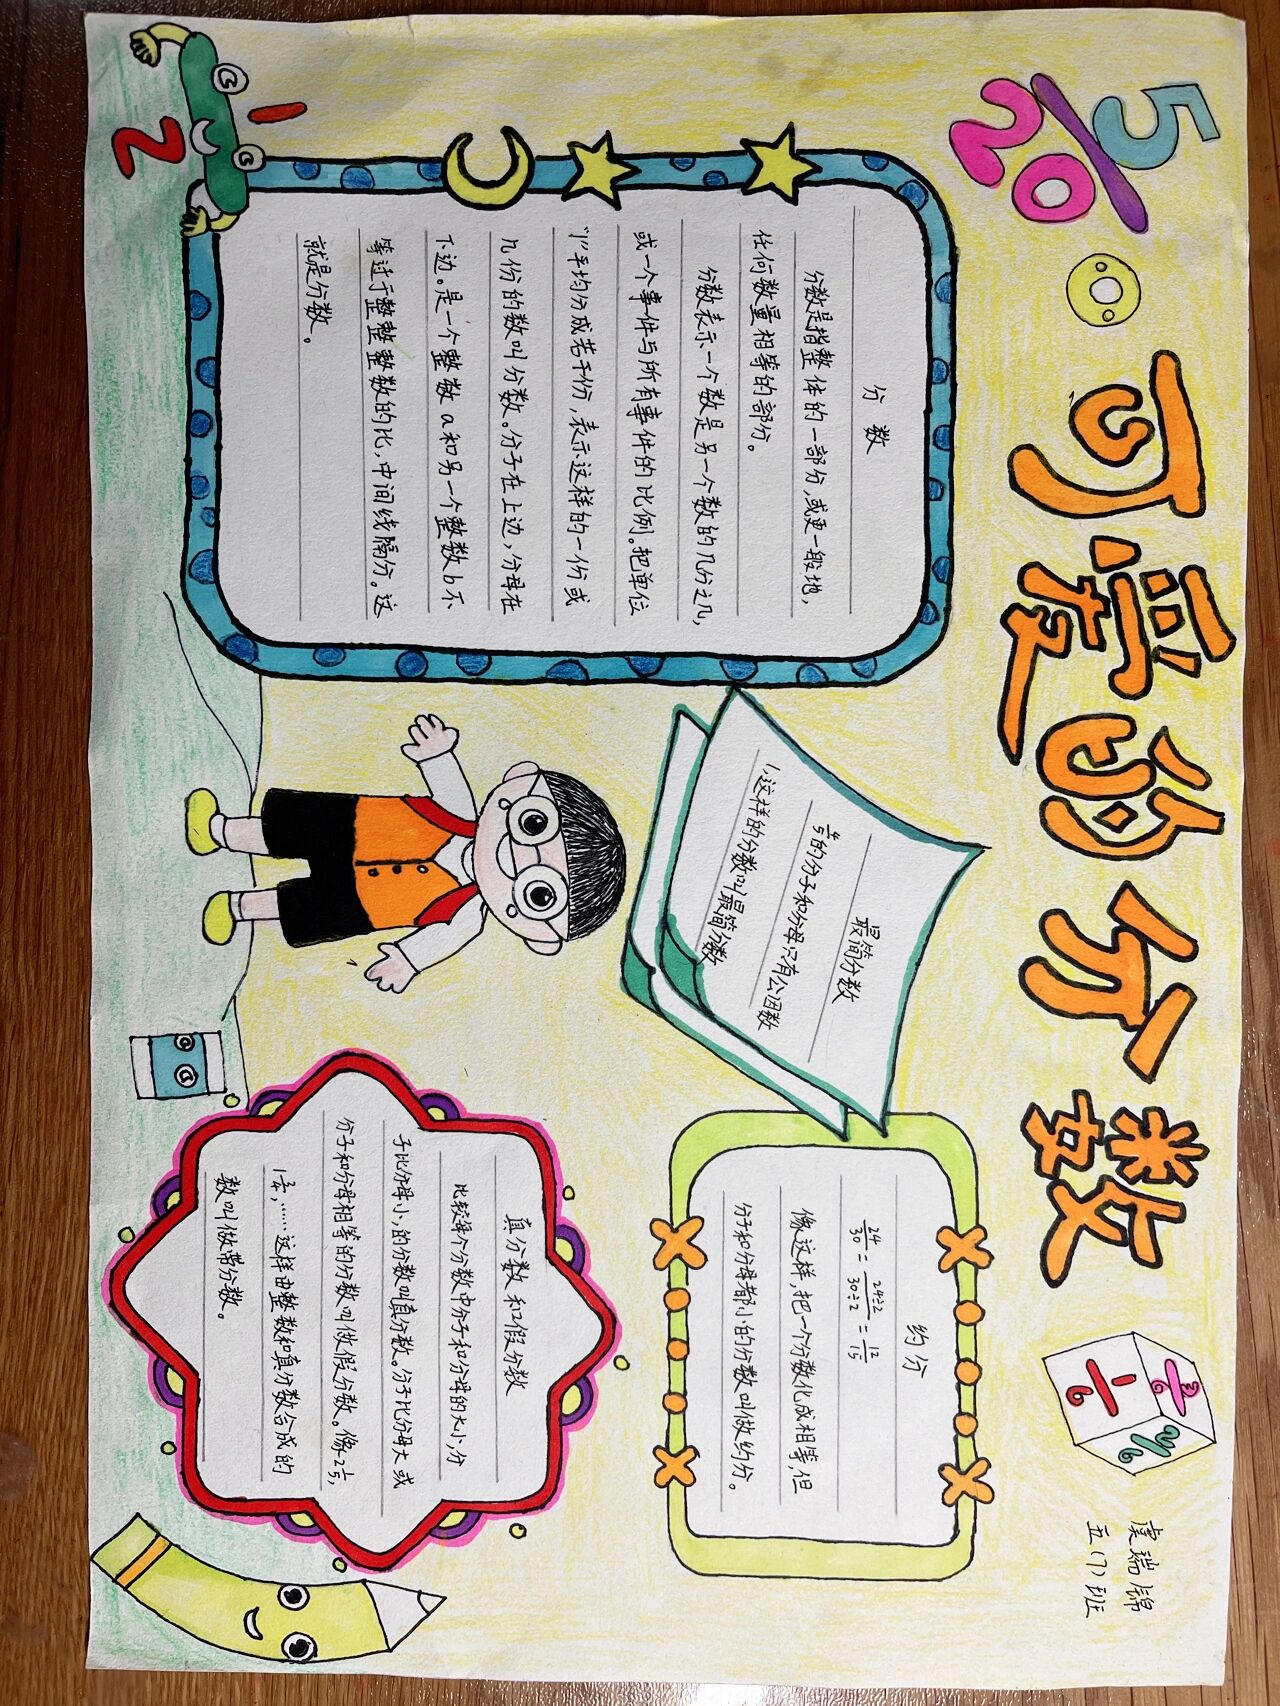 5/20
可爱的分数
1/6
3/6
2/6
虞瑞锦
五(7)班
1
2
分数
分数是指整体的一部分,或更一般地,
任何数量相等的部分。
分数表示一个数是另一个数的几分之几,
或一个事件与所有事件的比例。把单位
“1”平均分成若干份,表示这样的一份或
几份的数叫分数。分子在上边,分母在
下边。是一个整数a和另一个整数b不
等过于整整整数的比,中间线隔分。这
就是分数。
最简分数
4/5的分子和分母只有公因数
1,这样的分数叫最简分数
约分
24/30=24÷2/30÷2=12/15
像这样,把一个分数化成相等,但
分子和分母都小的分数叫做约分。
真分数和假分数
比较每个分数中分子和分母的大小,分
子比分母小,的分数叫真分数。分子比分母大或
分子和分母相等的分数叫做假分数。像2 1/5,
1 3/4,……这样由整数和真分数合成的
数叫做带分数。